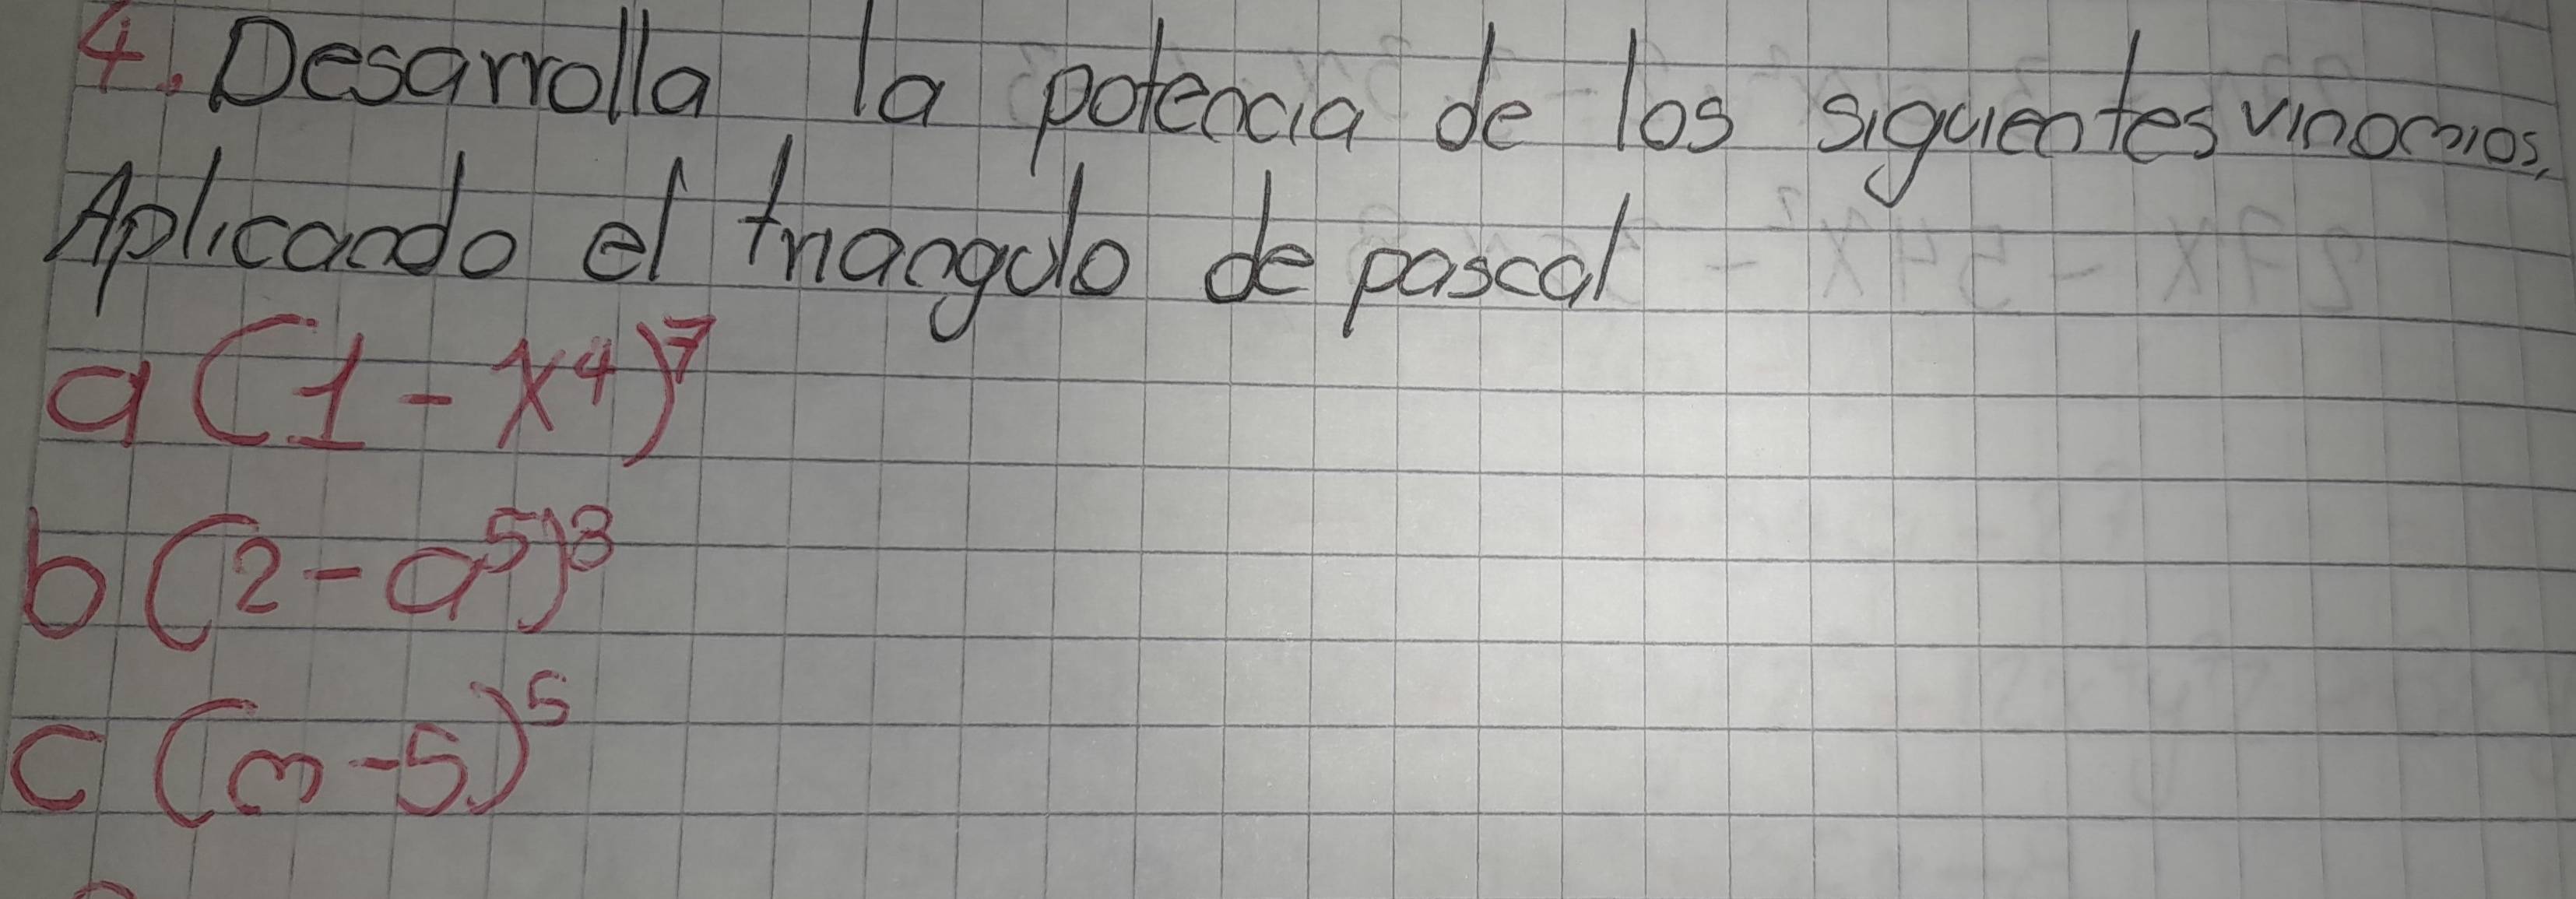 4. Desarrolla la potencia de los siguientes vinomios,
Aplicando el triangulo de pascal
a (1 - x⁴)⁷
b (2 - a⁵)³
c (m - 5)⁵